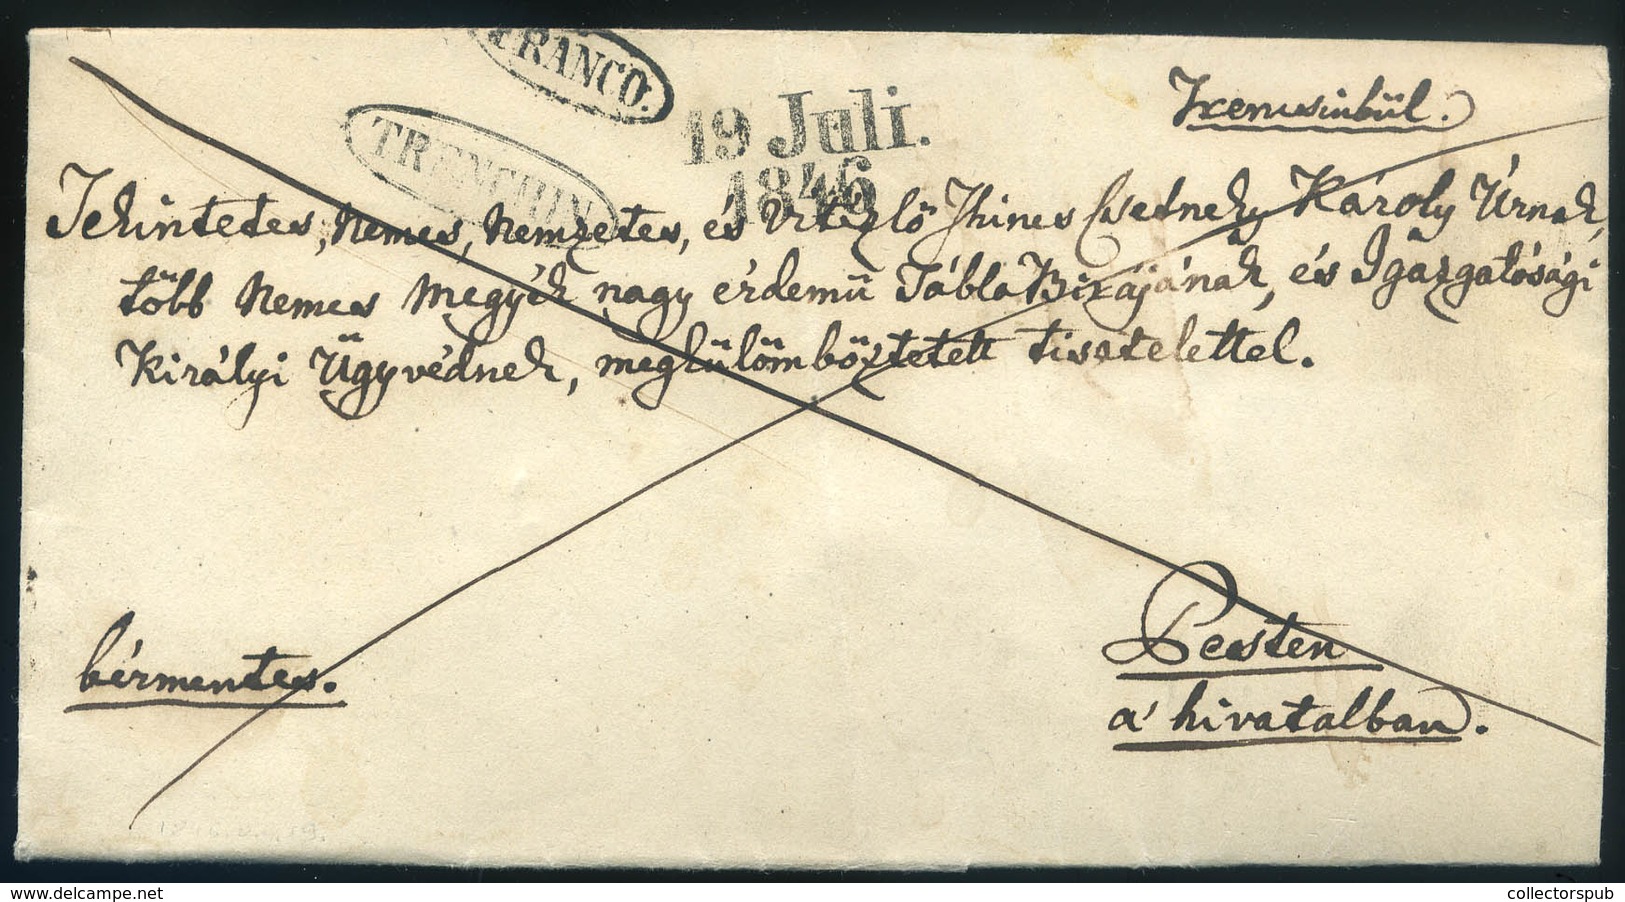 FRANCO.
TRENCHIN
19 Juli.
1846
Trencsinbül.
Tekintetes, Nemes, Nemzetes, és Vitézlő Ihines Csetneky Károly Úrnak,
több Nemes Megyék nagy érdemü TáblaBirájának, és Igazgatósági
Királyi Ügyvédnek, megkülömböztetett tisztelettel.
bérmentes.
Pesten
a' hivatalban.
www.delcampe.net
collectorspub